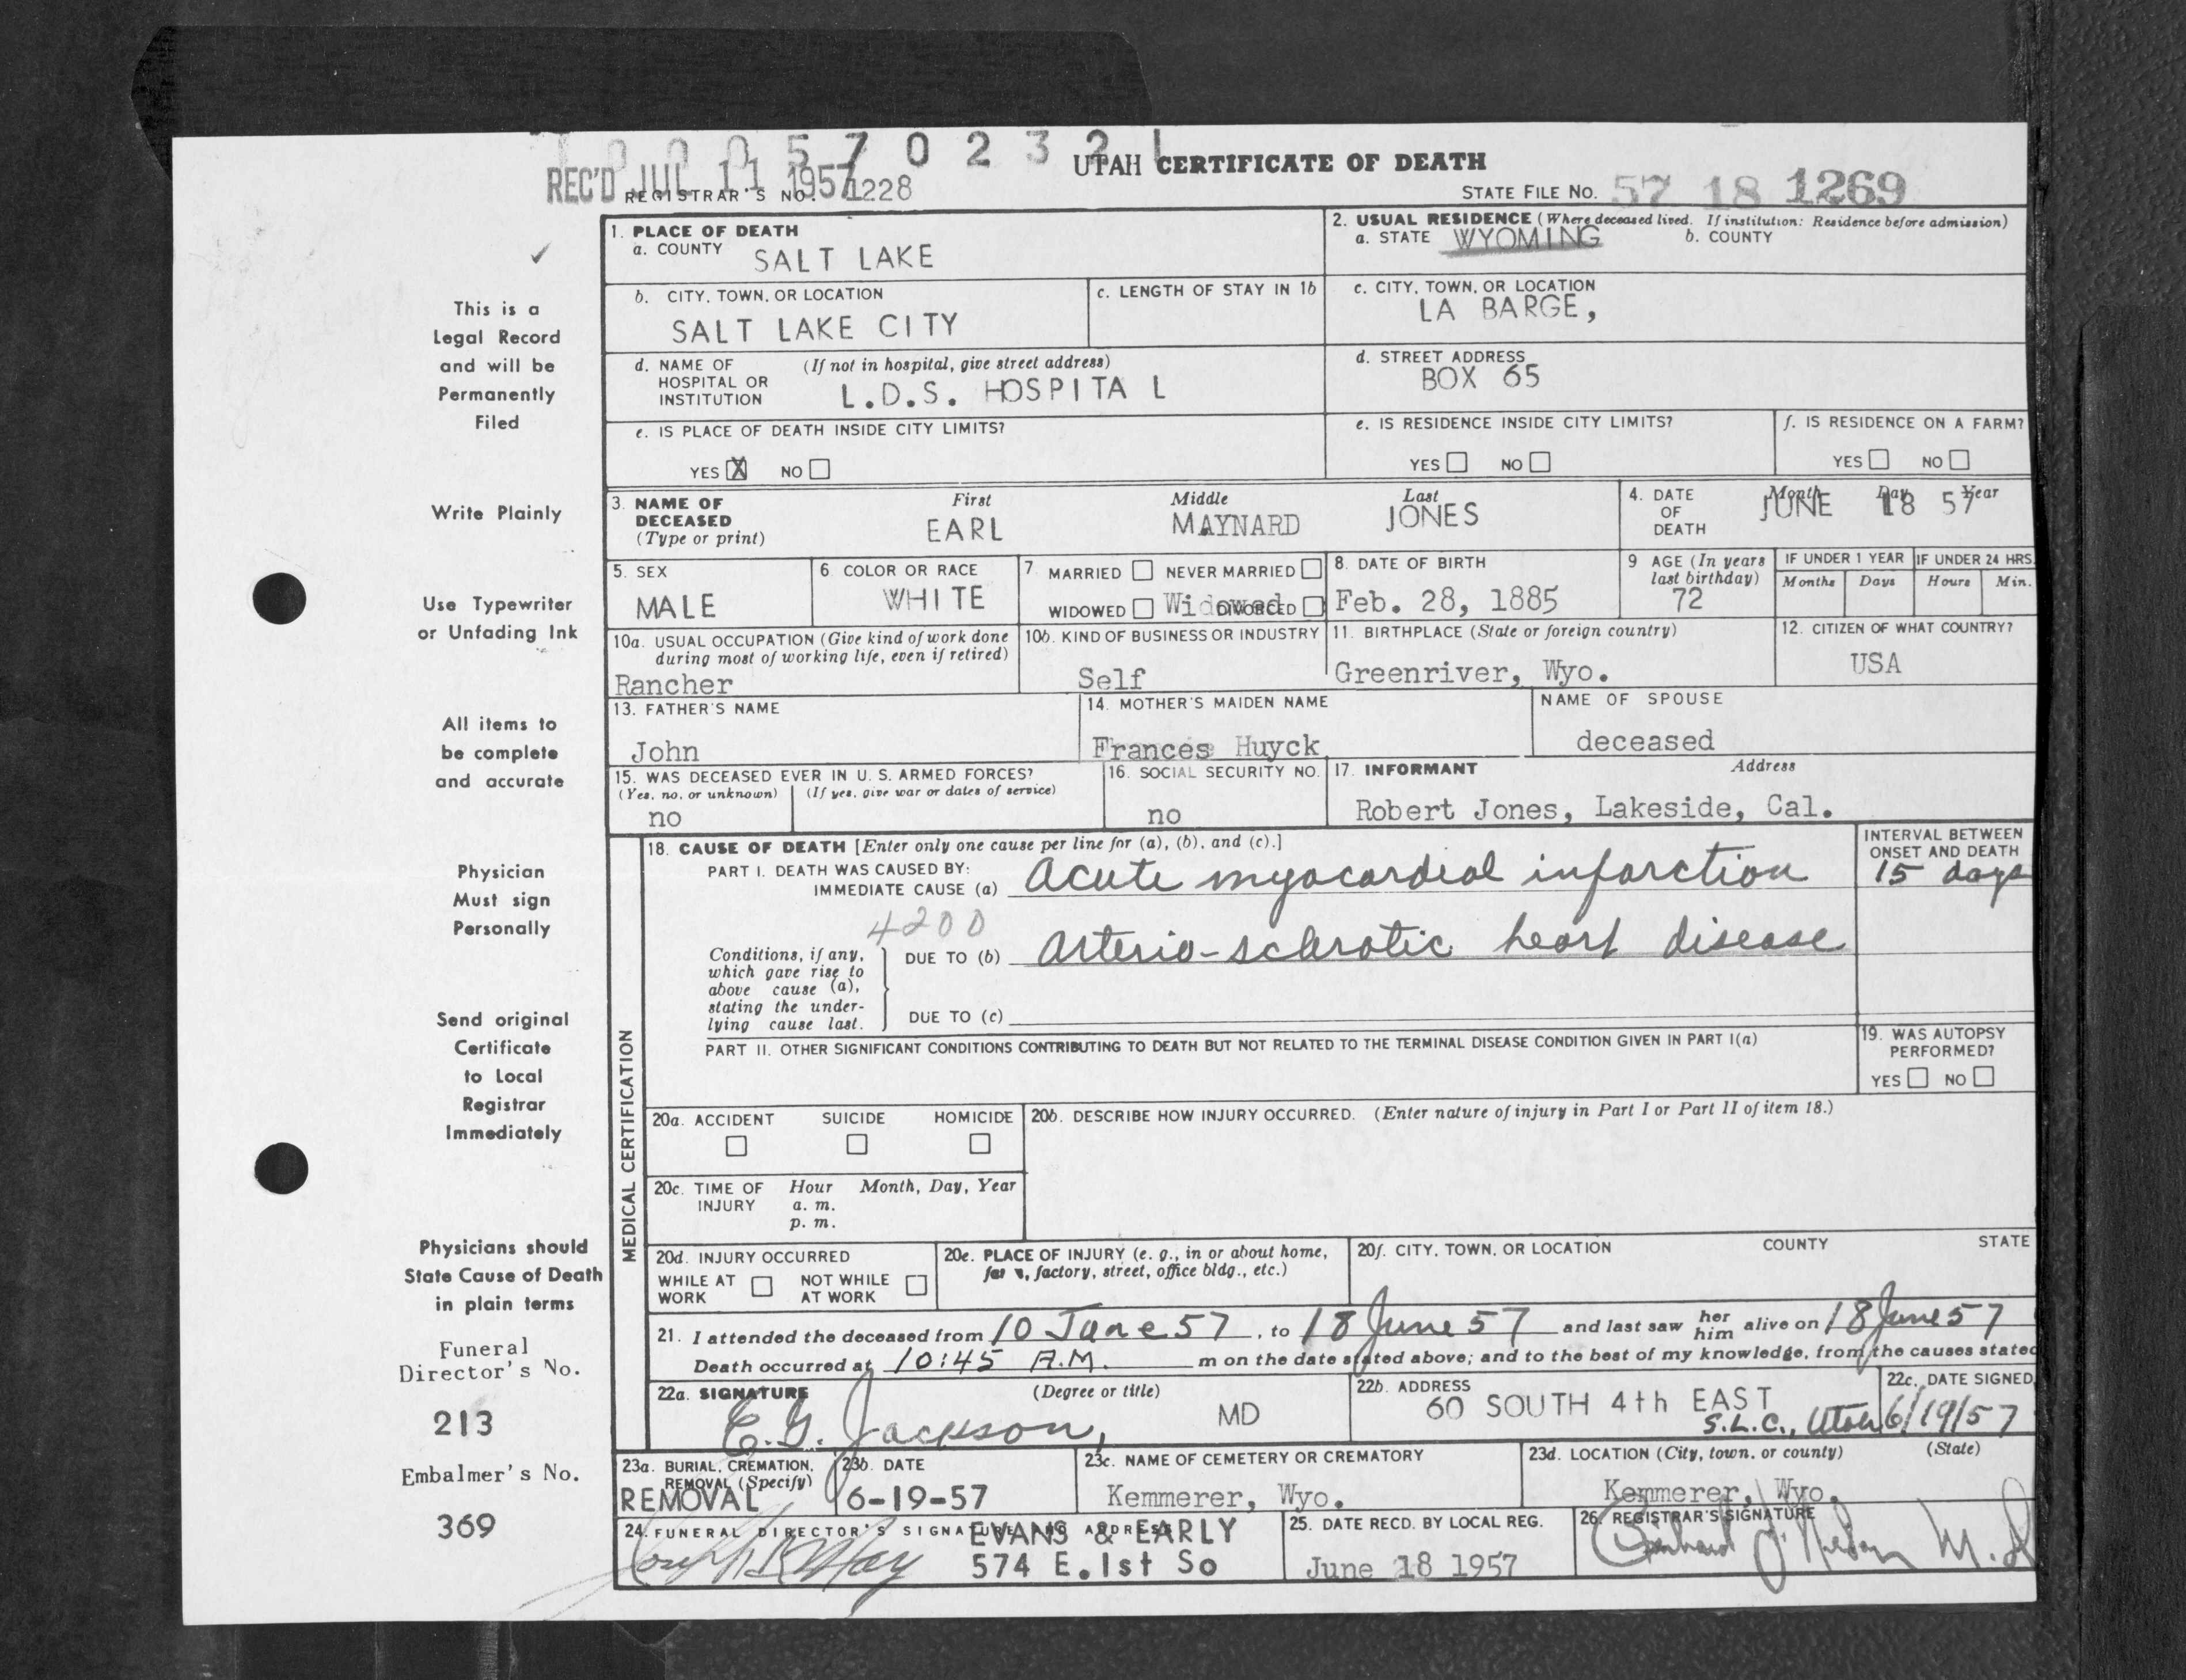 1 0 0 0 5 7 0 2 3 2 1
UTAH CERTIFICATE OF DEATH
REC'D JUL 11 1957
REGISTRAR'S NO. 1228
STATE FILE NO. 57 18 1269
This is a
Legal Record
and will be
Permanently
Filed
Write Plainly
Use Typewriter
or Unfading Ink
All items to
be complete
and accurate
Physician
Must sign
Personally
Send original
Certificate
to Local
Registrar
Immediately
Physicians should
State Cause of Death
in plain terms
Funeral
Director's No.
213
Embalmer's No.
369
1. PLACE OF DEATH
a. COUNTY SALT LAKE
2. USUAL RESIDENCE (Where deceased lived. If institution: Residence before admission)
a. STATE WYOMING b. COUNTY
b. CITY, TOWN, OR LOCATION
SALT LAKE CITY
c. LENGTH OF STAY IN 1b
c. CITY, TOWN, OR LOCATION
LA BARGE,
d. NAME OF HOSPITAL OR INSTITUTION (If not in hospital, give street address)
L.D.S. HOSPITA L
d. STREET ADDRESS
BOX 65
e. IS PLACE OF DEATH INSIDE CITY LIMITS?
YES X NO
e. IS RESIDENCE INSIDE CITY LIMITS?
YES NO
f. IS RESIDENCE ON A FARM?
YES NO
3. NAME OF DECEASED (Type or print)
First Middle Last
EARL MAYNARD JONES
4. DATE OF DEATH
Month Day Year
JUNE 18 57
5. SEX
MALE
6. COLOR OR RACE
WHITE
7. MARRIED NEVER MARRIED
WIDOWED Widowed DIVORCED
8. DATE OF BIRTH
Feb. 28, 1885
9 AGE (In years last birthday)
72
IF UNDER 1 YEAR
Months Days
IF UNDER 24 HRS.
Hours Min.
10a. USUAL OCCUPATION (Give kind of work done during most of working life, even if retired)
Rancher
10b. KIND OF BUSINESS OR INDUSTRY
Self
11. BIRTHPLACE (State or foreign country)
Greenriver, Wyo.
12. CITIZEN OF WHAT COUNTRY?
USA
13. FATHER'S NAME
John
14. MOTHER'S MAIDEN NAME
Frances Huyck
NAME OF SPOUSE
deceased
15. WAS DECEASED EVER IN U. S. ARMED FORCES?
(Yes, no, or unknown) (If yes, give war or dates of service)
no
16. SOCIAL SECURITY NO.
no
17. INFORMANT Address
Robert Jones, Lakeside, Cal.
MEDICAL CERTIFICATION
18. CAUSE OF DEATH [Enter only one cause per line for (a), (b), and (c).]
PART I. DEATH WAS CAUSED BY:
IMMEDIATE CAUSE (a) Acute myocardial infarction
INTERVAL BETWEEN ONSET AND DEATH
15 days
4200
Conditions, if any, which gave rise to above cause (a), stating the underlying cause last.
DUE TO (b) Arterio-sclerotic heart disease
DUE TO (c)
PART II. OTHER SIGNIFICANT CONDITIONS CONTRIBUTING TO DEATH BUT NOT RELATED TO THE TERMINAL DISEASE CONDITION GIVEN IN PART I(a)
19. WAS AUTOPSY PERFORMED?
YES NO
20a. ACCIDENT SUICIDE HOMICIDE
20b. DESCRIBE HOW INJURY OCCURRED. (Enter nature of injury in Part I or Part II of item 18.)
20c. TIME OF INJURY Hour Month, Day, Year
a. m.
p. m.
20d. INJURY OCCURRED
WHILE AT WORK NOT WHILE AT WORK
20e. PLACE OF INJURY (e. g., in or about home, farm, factory, street, office bldg., etc.)
20f. CITY, TOWN, OR LOCATION COUNTY STATE
21. I attended the deceased from 10 June 57, to 18 June 57 and last saw her him alive on 18 June 57
Death occurred at 10:45 A.M. m on the date stated above; and to the best of my knowledge, from the causes stated
22a. SIGNATURE (Degree or title)
E.G. Jackson, MD
22b. ADDRESS
60 SOUTH 4th EAST
S.L.C., Utah
22c. DATE SIGNED
6/19/57
23a. BURIAL, CREMATION, REMOVAL (Specify)
REMOVAL
23b. DATE
6-19-57
23c. NAME OF CEMETERY OR CREMATORY
Kemmerer, Wyo.
23d. LOCATION (City, town, or county) (State)
Kemmerer, Wyo.
24. FUNERAL DIRECTOR'S SIGNATURE AND ADDRESS
EVANS & EARLY
574 E. 1st So
25. DATE RECD. BY LOCAL REG.
June 18 1957
26. REGISTRAR'S SIGNATURE
M.D